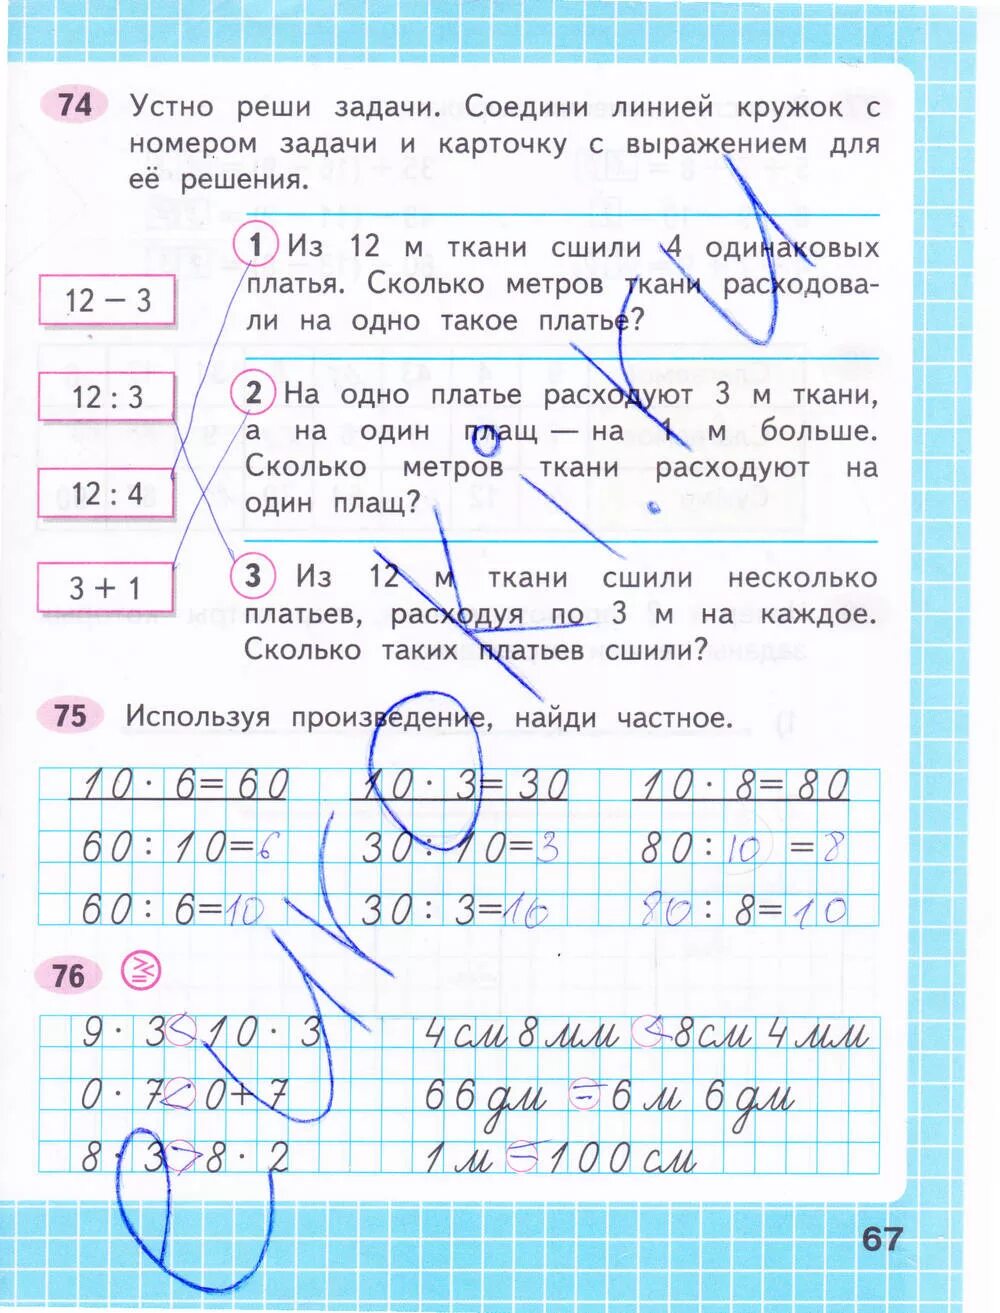 74 Устно реши задачи. Соедини линией кружок с
номером задачи и карточку с выражением для
её решения.
1 Из 12 м ткани сшили 4 одинаковых
платья. Сколько метров ткани расходова-
ли на одно такое платье?
12 – 3
12 : 3
2 На одно платье расходуют 3 м ткани,
а на один плащ – на 1 м больше.
Сколько метров ткани расходуют на
один плащ?
12 : 4
3 + 1
3 Из 12 м ткани сшили несколько
платьев, расходуя по 3 м на каждое.
Сколько таких платьев сшили?
75 Используя произведение, найди частное.
10 · 6 = 60 10 · 3 = 30 10 · 8 = 80
60 : 10 = 6 30 : 10 = 3 80 : 10 = 8
60 : 6 = 10 30 : 3 = 10 80 : 8 = 10
76
9 · 3 < 10 · 3 4 см 8 мм < 8 см 4 мм
0 · 7 < 0 + 7 66 дм = 6 м 6 дм
8 · 3 > 8 · 2 1 м = 100 см
67